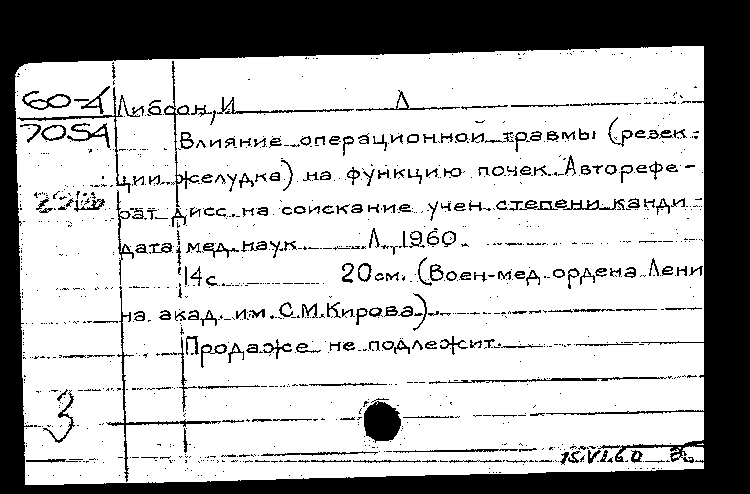 60-4
7054
Либсон, И Л
Влияние операционной травмы (резек-
ции желудка) на функцию почек. Авторефе-
рат дисс. на соискание учен. степени канди-
дата мед. наук. Л., 1960.
14 с. 20 см. (Воен-мед. ордена Лени
на акад. им. С.М.Кирова).
Продаже не подлежит.
3
15.VI.60